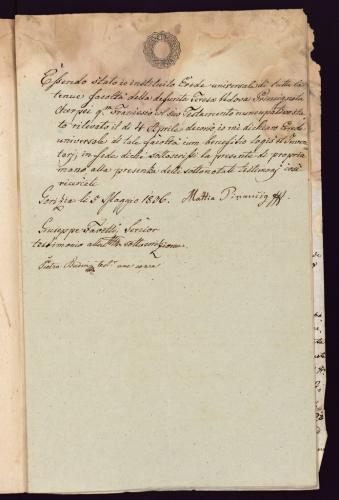 Essendo stato io instituito Erede universale di tutta la
tenue facoltà della defunta Teresa Vedova
qm Francesco nel suo Testamento nuncupativo sta
to rilevato il dì 4 Aprile decorso io mi dichiaro Erede
universale di tale facoltà cum beneficio Legis et Inven
tarj, in fede dello sottoscrissi la presente di propria
mano alla presenza delli sottonotati Testimonj così
ricercati
Gorizia li 5 Maggio 1826. Mattia
Giuseppe
testimonio alla sottoscrizione
Pietro